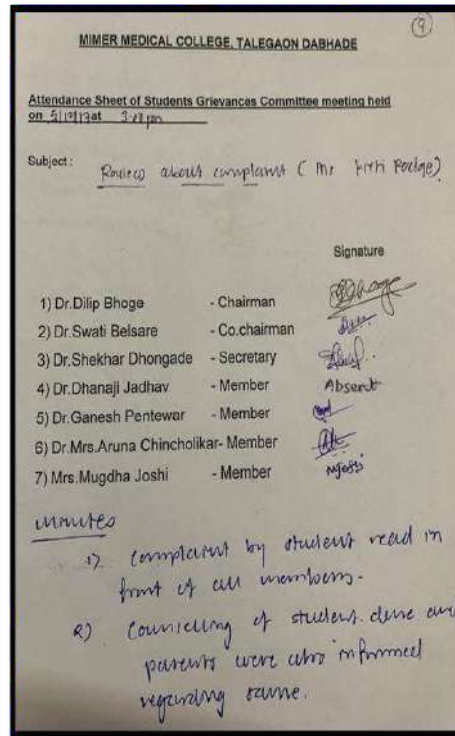 9
MIMER MEDICAL COLLEGE, TALEGAON DABHADE
Attendance Sheet of Students Grievances Committee meeting held
on at 3.00 pm
Subject: about complaint (
Signature
1) Dr.Dilip Bhoge - Chairman
2) Dr.Swati Belsare - Co.chairman
3) Dr.Shekhar Dhongade - Secretary
4) Dr.Dhanaji Jadhav - Member Absent
5) Dr.Ganesh Pentewar - Member
6) Dr.Mrs.Aruna Chincholikar- Member
7) Mrs.Mugdha Joshi - Member MJoshi
Minutes
1) complaint by student read in
front of all members.
2) Councelling of student done and
parents were also informed
regarding same.